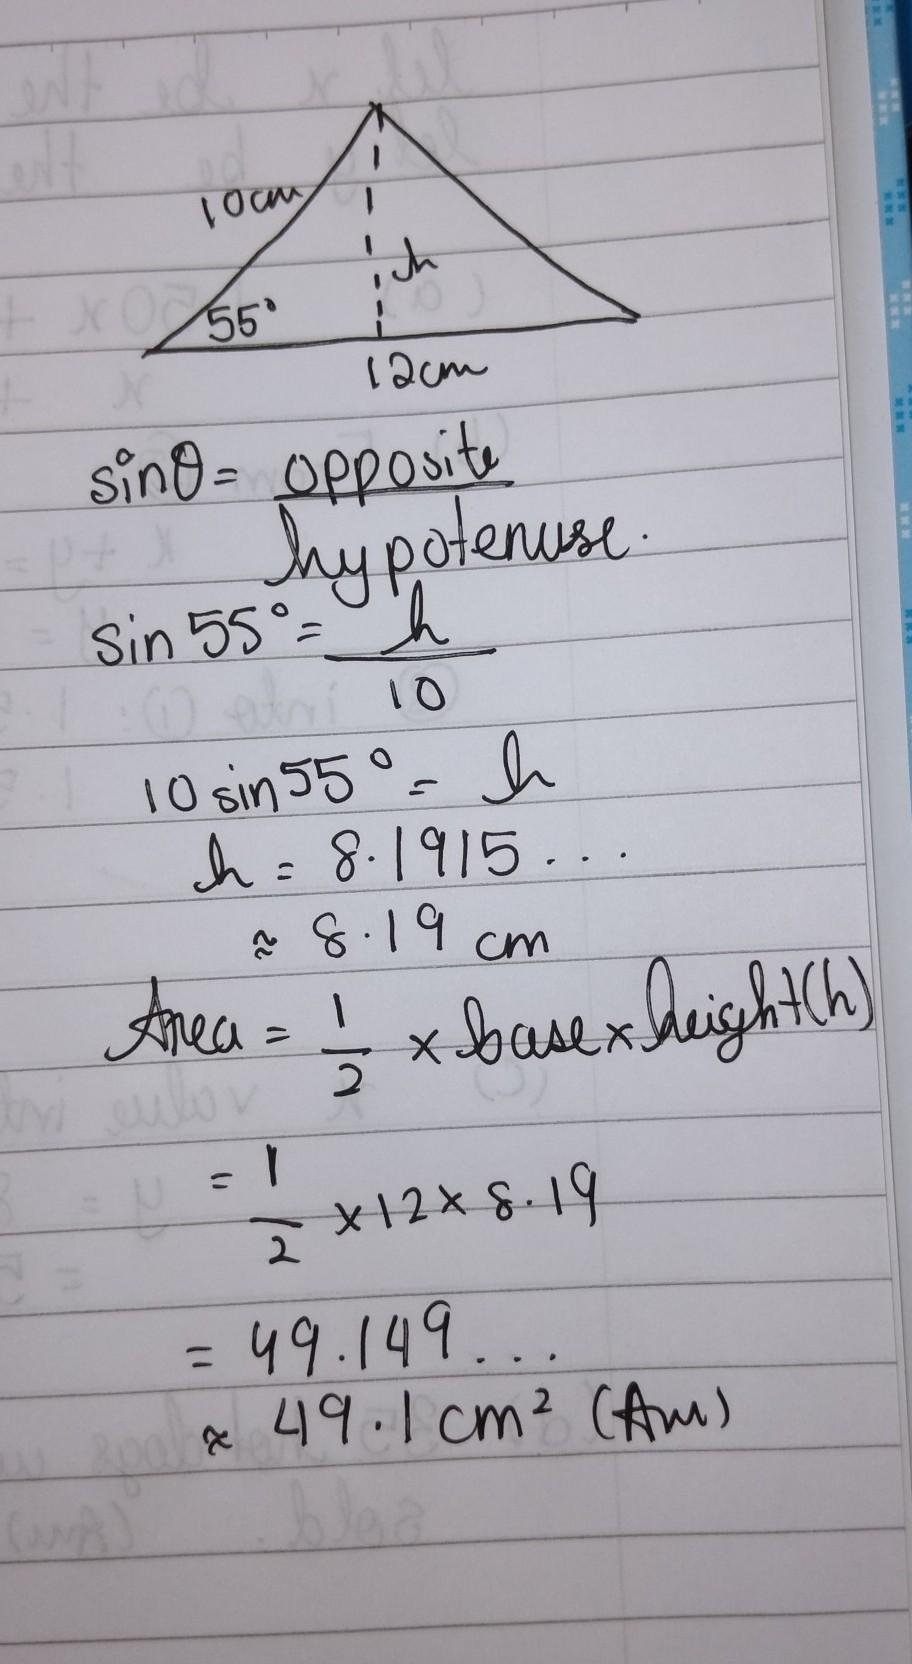 10cm
h
55°
12cm
sinθ = opposite
hypotenuse.
sin 55° = h
10
10 sin 55° = h
h = 8.1915...
≈ 8.19 cm
Area = 1/2 × base × height(h)
= 1/2 × 12 × 8.19
= 49.149...
≈ 49.1 cm² (Ans)